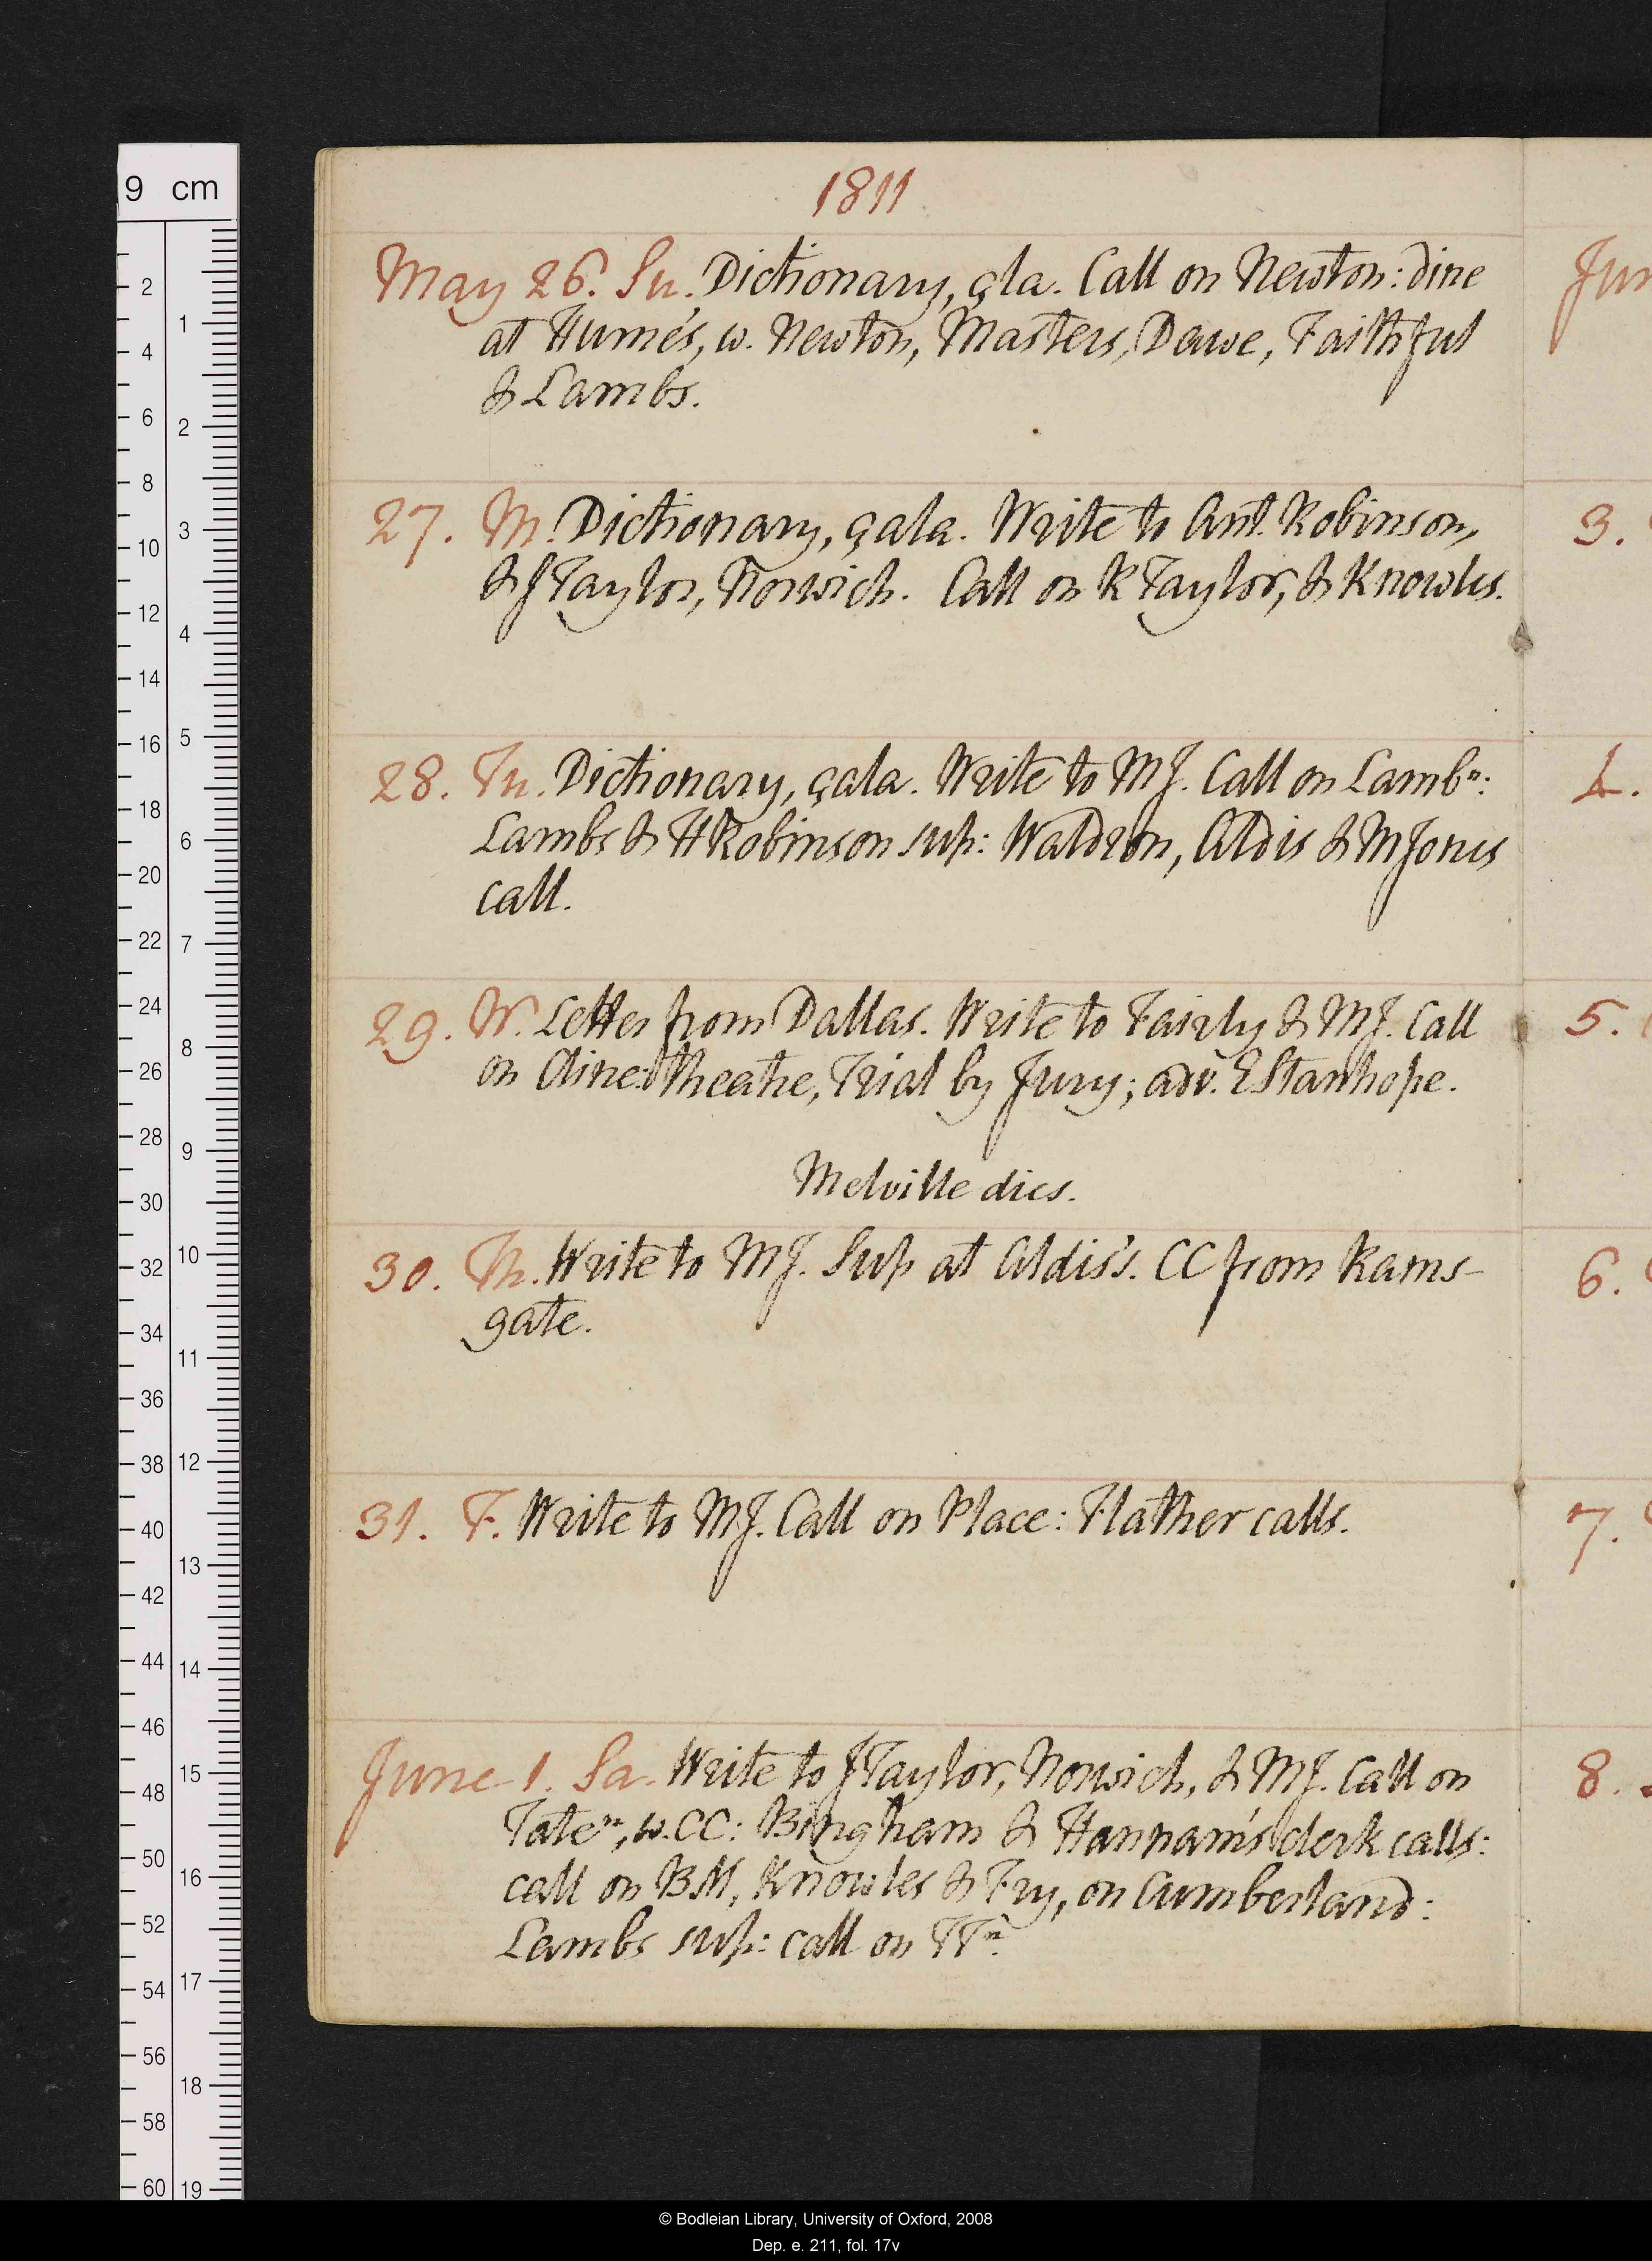 1811
May 26. Su. Dictionary, çla. Call on Newton: dine
at Hume's, w. Newton, Masters, Dawe, Faithful
& Lambs.
27. M. Dictionary, çala. Write to Ant. Robinson,
& J Taylor, Norwich. Call on R Taylor, & Knowles.
28. Tu. Dictionary, çala. Write to MJ. Call on Lambⁿ:
Lambs & H Robinson sup: Waldron, Aldis & M Jones
call.
29. W. Letter from Dallas. Write to Fairly & MJ. Call
on Cline: theatre, Trial by Jury; adv. E Stanhope.
Melville dies.
30. Th. Write to MJ. Sup at Aldis's. CC from Rams-
gate.
31. F. Write to MJ. Call on Place: Flather calls.
June 1. Sa. Write to J Taylor, Norwich, & MJ. Call on
Tateⁿ, w. CC: Bingham & Hannam's clerk calls:
call on BM, Knowles & Fry, on Cumberland:
Lambs sup: call on TTⁿ.
Jun
3.
4.
5.
6.
7.
8.
9 cm
2
4
6
8
10
12
14
16
18
20
22
24
26
28
30
32
34
36
38
40
42
44
46
48
50
52
54
56
58
60
1
2
3
4
5
6
7
8
9
10
11
12
13
14
15
16
17
18
19
© Bodleian Library, University of Oxford, 2008
Dep. e. 211, fol. 17v